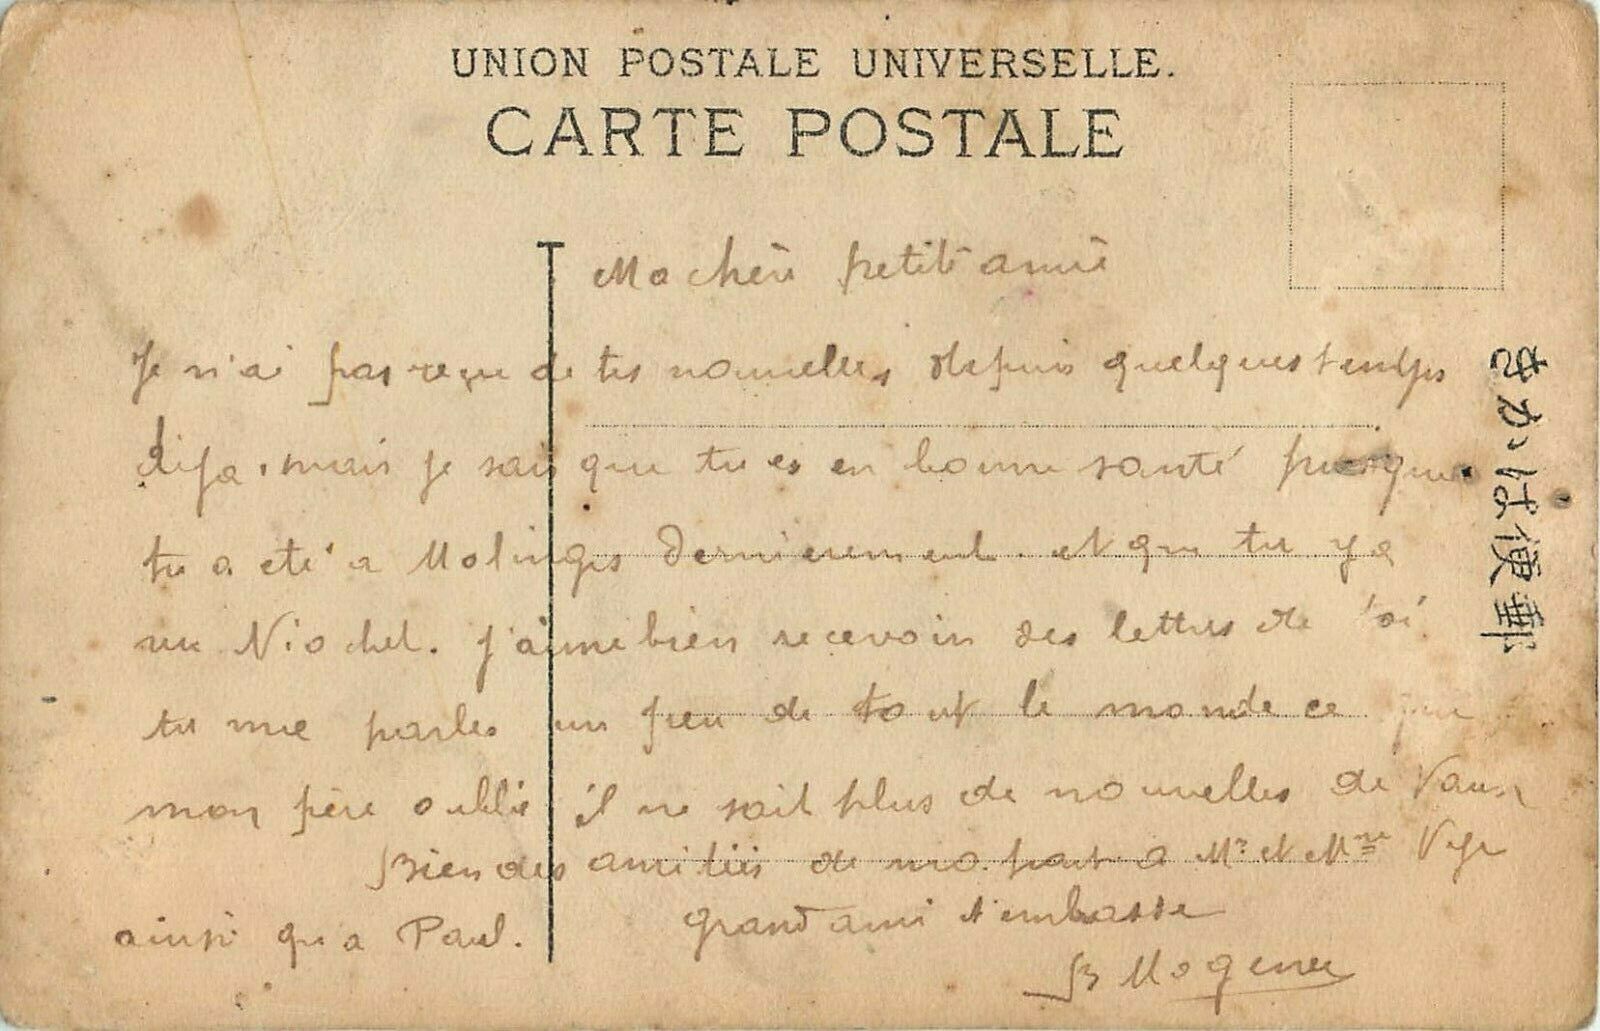 UNION POSTALE UNIVERSELLE.
CARTE POSTALE
きかは便郵
Ma chère petite amie
Je n'ai pas reçu de tes nouvelles depuis quelques temps
déja, mais je sais que tu es en bonne santé puisque
tu a eté a Molinges dernierement et que tu y a
vu Niochet. J'aime bien recevoir des lettres de toi
tu me parles un peu de tout le monde ce que
mon père oublie il ne sait plus de nouvelles de Vaux
Bien des amitiés de ma part a Mr et Mme
ainsi qu a Paul.
grand ami t'embrasse
B